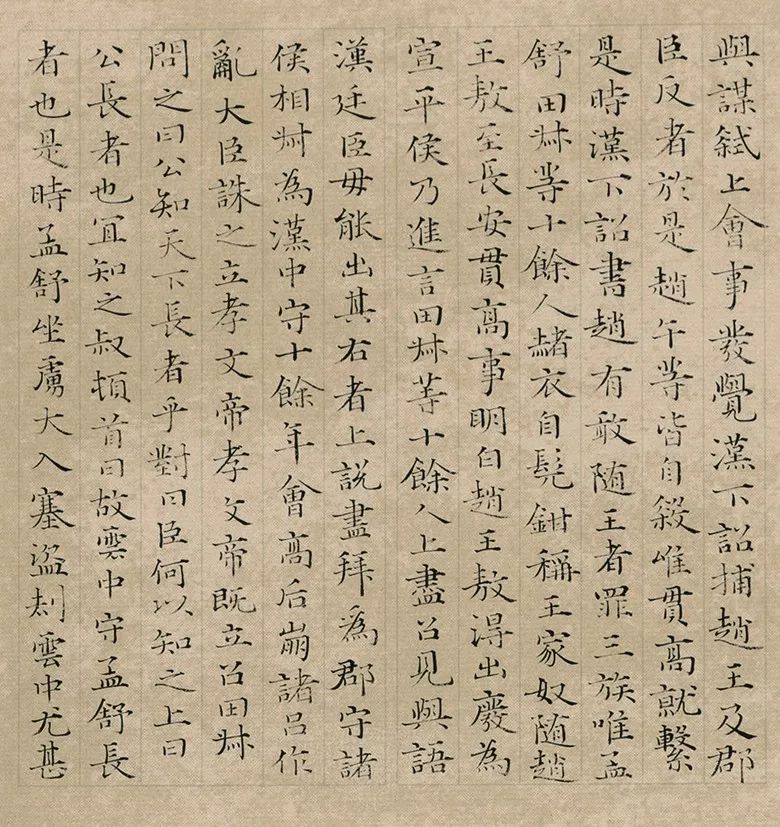 與謀弒上會事發覺漢下詔捕趙王及郡
臣反者於是趙午等皆自殺唯貫高就繫
是時漢下詔書趙有敢随王者罪三族唯孟
舒田叔等十餘人赭衣自髡鉗稱王家奴随趙
王敖至長安貫高事明白趙王敖得出廢為
宣平侯乃進言田叔等十餘人上盡召見與語
漢廷臣毋能出其右者上説盡拜為郡守諸
侯相叔為漢中守十餘年會高后崩諸呂作
亂大臣誅之立孝文帝孝文帝既立召田叔
問之曰公知天下長者乎對曰臣何以知之上曰
公長者也宜知之叔頓首曰故雲中守孟舒長
者也是時孟舒坐虜大入塞盜刼雲中尤甚